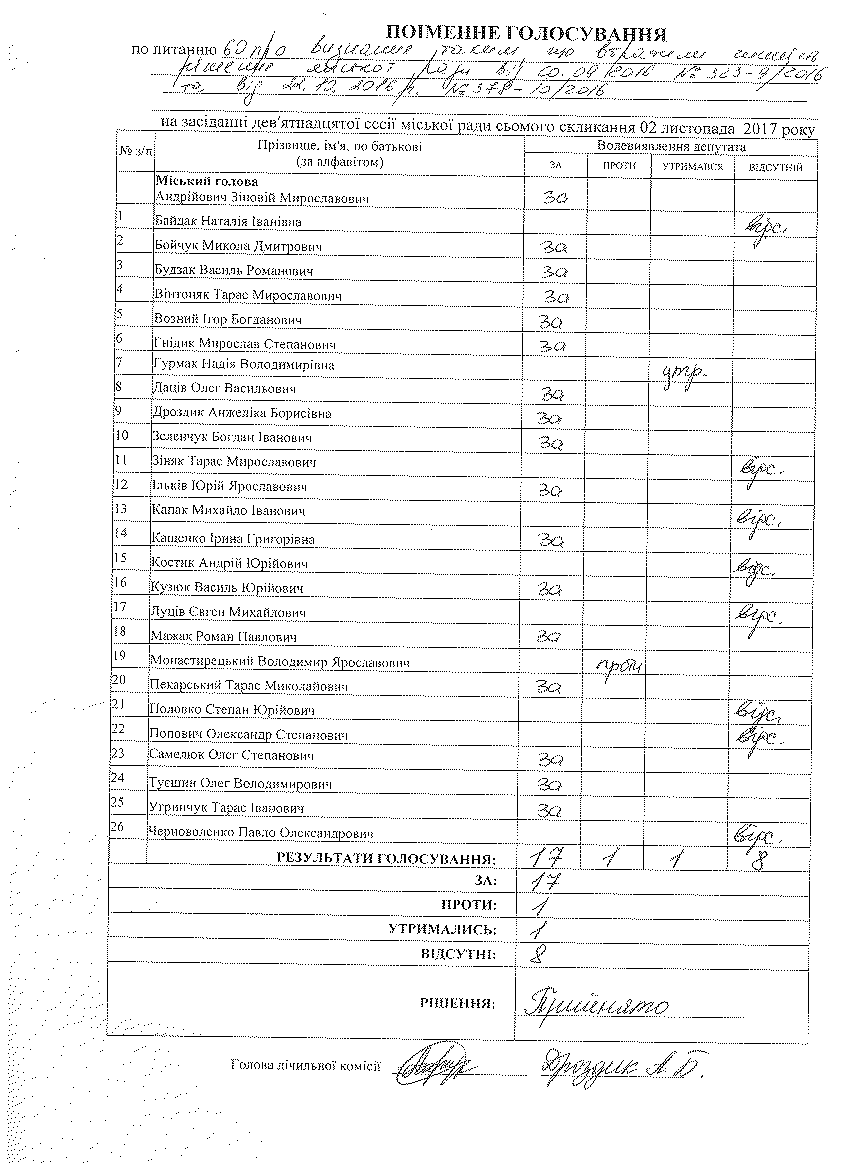 ПОІМЕННЕ ГОЛОСУВАННЯ
по питанню 60 про визнання таким що втратили
рішення міської ради від 09/2016 № 323-9/2016
та від 22.10.2016 р. № 378-10/2016
на засіданні дев'ятнадцятої сесії міської ради сьомого скликання 02 листопада 2017 року
№ з/п Прізвище, ім'я, по батькові (за алфавітом) Волевиявлення депутата
ЗА ПРОТИ УТРИМАВСЯ ВІДСУТНІЙ
Міський голова
Андрійович Зіновій Мирославович за
1 Байдак Наталія Іванівна відс.
2 Бойчук Микола Дмитрович за
3 Будзак Василь Романович за
4 Вінтоняк Тарас Мирославович за
5 Возний Ігор Богданович за
6 Гнідик Мирослав Степанович за
7 Гурмак Надія Володимирівна утр.
8 Даців Олег Васильович за
9 Дроздик Анжеліка Борисівна за
10 Зеленчук Богдан Іванович за
11 Зіняк Тарас Мирославович відс.
12 Ільків Юрій Ярославович за
13 Капак Михайло Іванович відс.
14 Кащенко Ірина Григорівна за
15 Костик Андрій Юрійович відс.
16 Кузюк Василь Юрійович за
17 Луців Євген Михайлович відс.
18 Мажак Роман Павлович за
19 Монастирецький Володимир Ярославович проти
20 Пекарський Тарас Миколайович за
21 Половко Степан Юрійович відс.
22 Попович Олександр Степанович відс.
23 Самелюк Олег Степанович за
24 Туєшин Олег Володимирович за
25 Угринчук Тарас Іванович за
26 Черноволенко Павло Олександрович відс.
РЕЗУЛЬТАТИ ГОЛОСУВАННЯ: 17 1 1 8
ЗА: 17
ПРОТИ: 1
УТРИМАЛИСЬ: 1
ВІДСУТНІ: 8
РІШЕННЯ: Прийнято
Голова лічильної комісії Дроздик А Б.